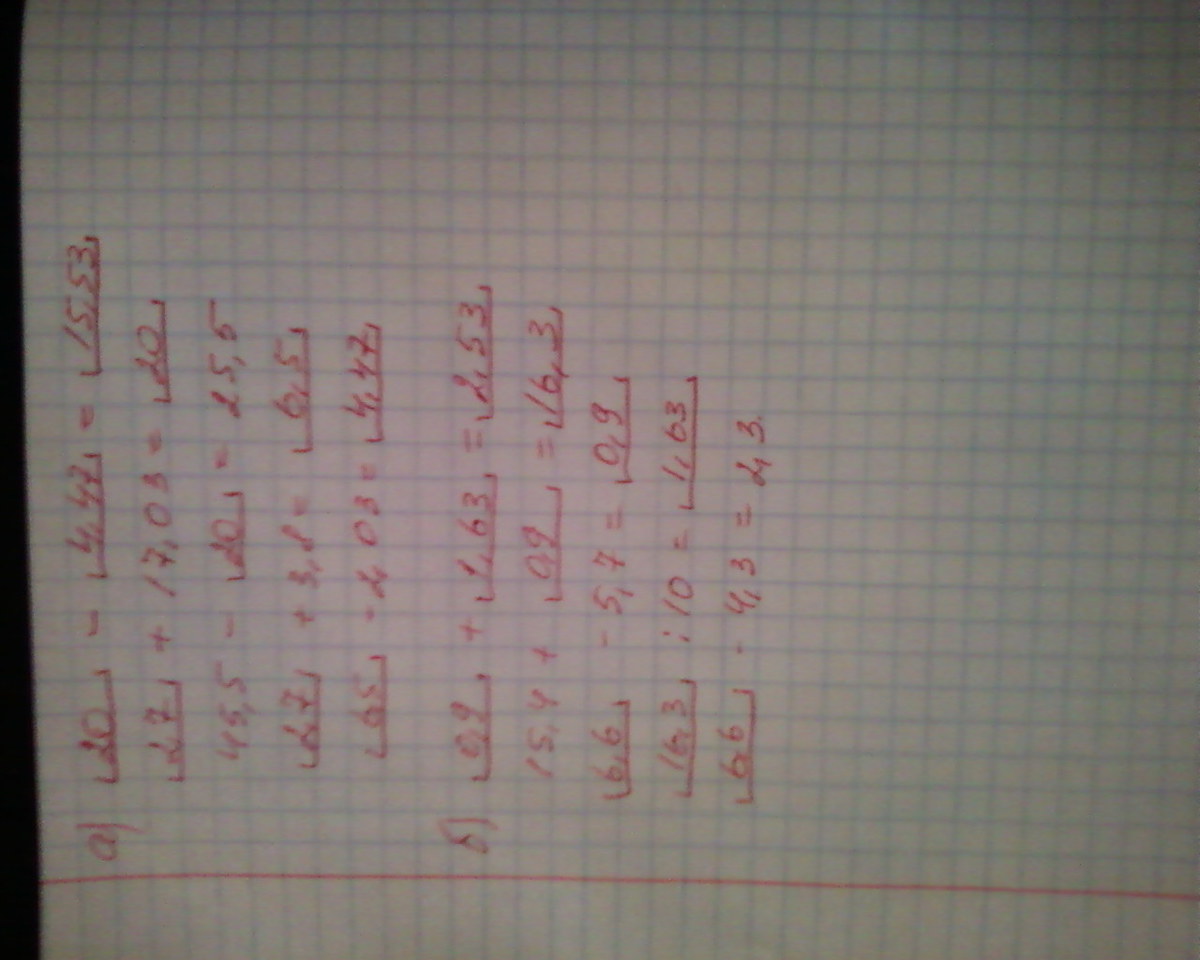 а) 20 - 4,47 = 15,53
27 + 17,03 = 20
45,5 - 20 = 25,5
2,7 + 3,8 = 6,5
6,5 - 2,03 = 4,47
б) 0,9 + 1,63 = 2,53
15,4 + 0,9 = 16,3
6,6 - 5,7 = 0,9
16,3 : 10 = 1,63
6,6 - 4,3 = 2,3